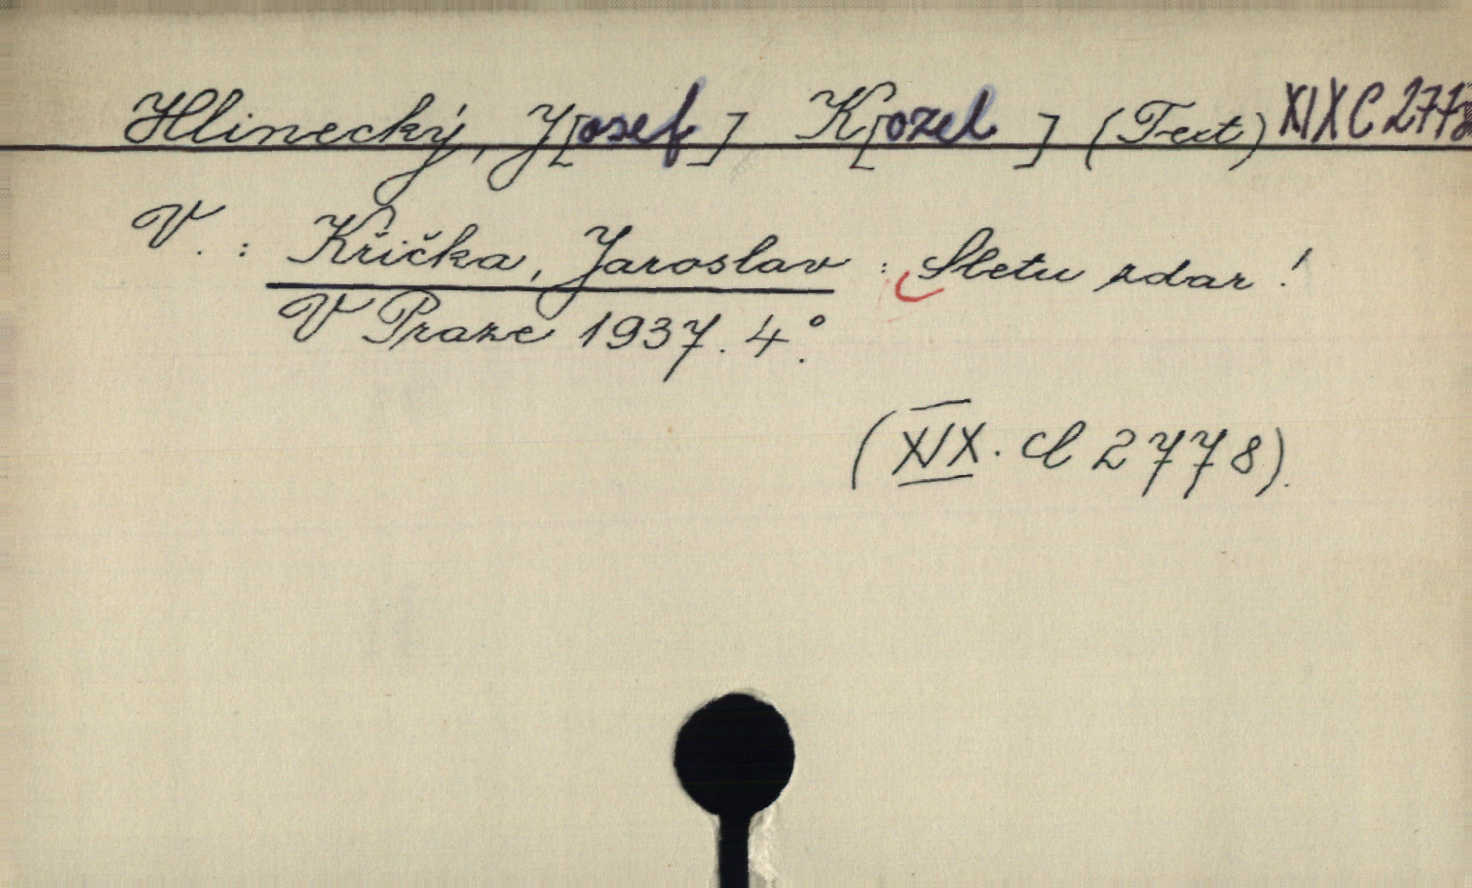 Hlinecký, J[osef] K[ozel] (Text) XIX C 2778
V. : Křička, Jaroslav : Sletu zdar!
V Praze 1937. 4°.
(XIX. C 2778).